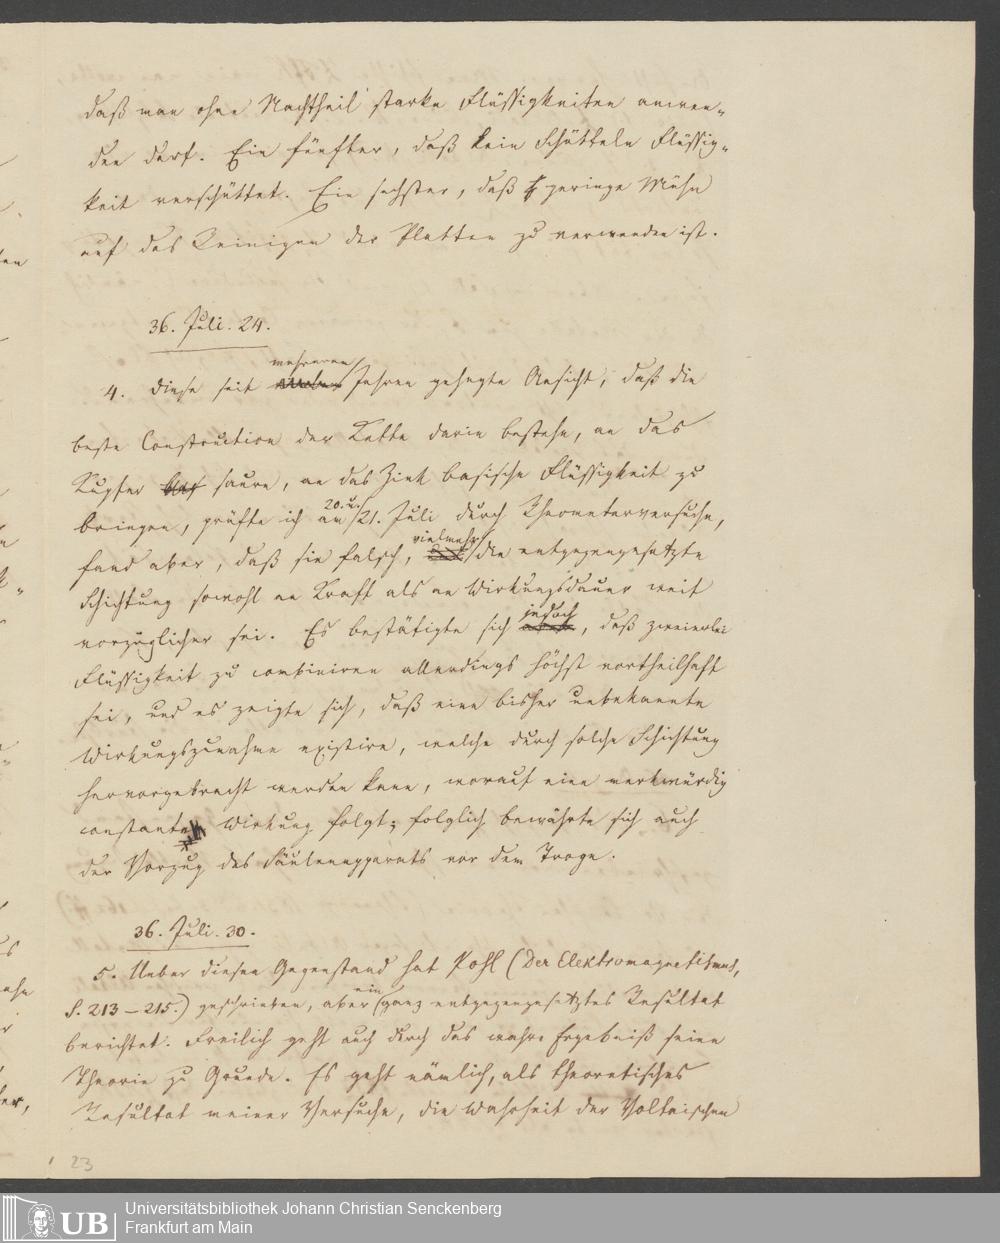 daß man ohne Nachtheil starke Flüssigkeiten anwen-
den darf. Ein fünfter, daß kein Schütteln Flüssig-
keit verschüttet. Ein sechster, daß geringe Mühe
auf das Reinigen der Platten zu verwenden ist.
36. Juli. 24.
mehreren
4. Diese seit Jahren gehegte Ansicht, daß die
beste Construction der Kette darin bestehe, an das
Kupfer saure, an das Zink basische Flüssigkeit zu
20. u.
bringen, prüfte ich am 21. Juli durch Rheometerversuche,
vielmehr
fand aber, daß sie falsch, die entgegengesetzte
Schichtung sowohl an Kraft als an Wirkungsdauer weit
jedoch
vorzüglicher sei. Es bestätigte sich , daß zweierlei
Flüssigkeit zu combiniren allerdings höchst vortheilhaft
sei, und es zeigte sich, daß eine bisher unbekannte
Wirkungszunahme existire, welche durch solche Schichtung
hervorgebracht werden kann, worauf eine merkwürdig
constante Wirkung folgt; folglich bewährte sich auch
der Vorzug des Säulenapparats vor dem Troge.
36. Juli. 30.
5. Ueber diesen Gegenstand hat Pohl (Der Elektromagnetismus,
ein
S. 213 – 215.) geschrieben, aber ganz entgegengesetztes Resultat
berichtet. Freilich geht auch durch das wahre Ergebniß seine
Theorie zu Grunde. Es geht nämlich, als theoretisches
Resultat meiner Versuche, die Wahrheit der Voltaischen
23
UB
Universitätsbibliothek Johann Christian Senckenberg
Frankfurt am Main